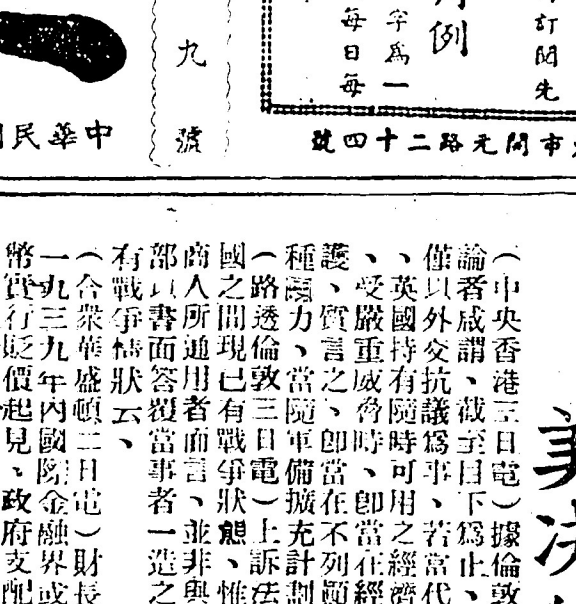 訂閱先
例
字為一
每日每
市開元路二十四號
九號
中華民
美決
（中央香港三日電）據倫敦
論者咸謂、截至目下為止、
僅以外交抗議為事、若當代
、英國持有隨時可用之經濟
、受嚴重威脅時、卽當在經
護、質言之、卽當在不列顛
種國力、當隨軍備擴充計劃
（路透倫敦三日電）上訴法
國之間現已有戰爭狀態、惟
商人所通用者而言、並非與
部以書面答覆當事者一造之
有戰爭情狀云、
（合衆華盛頓二日電）財長
一九三九年內國際金融界或
幣實行貶價起見、政府支配